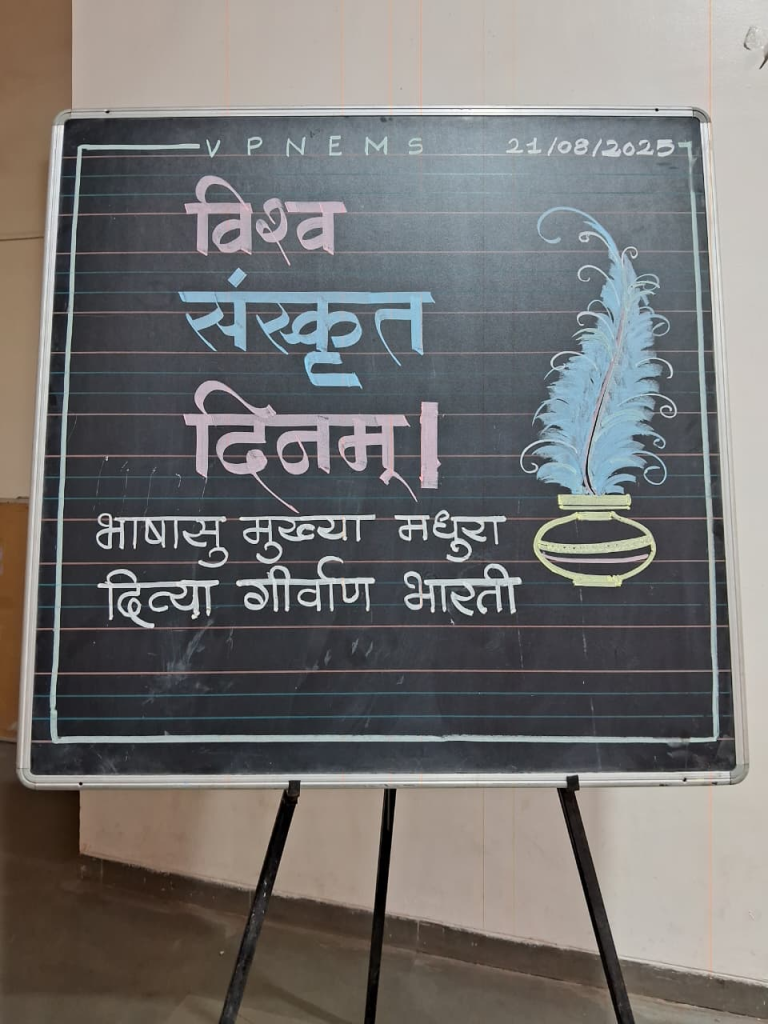 V P N E M S 21/08/2025
विश्व
संस्कृत
दिनम्।
भाषासु मुख्या मधुरा
दिव्या गीर्वाण भारती